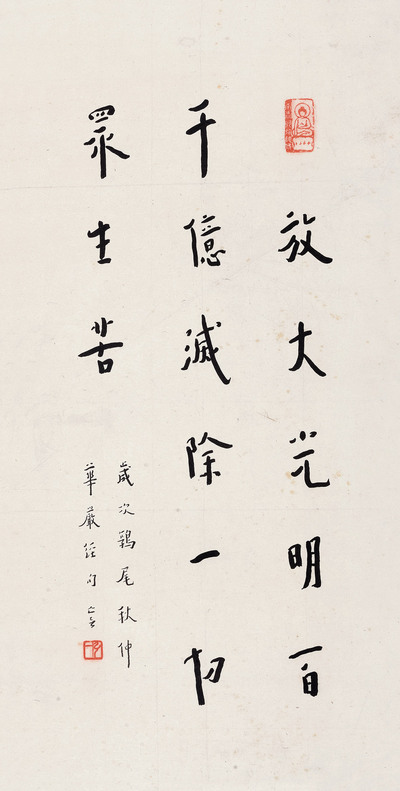 放大光明百
千億滅除一切
眾生苦
歲次鶉尾秋仲
華嚴經句 亡言